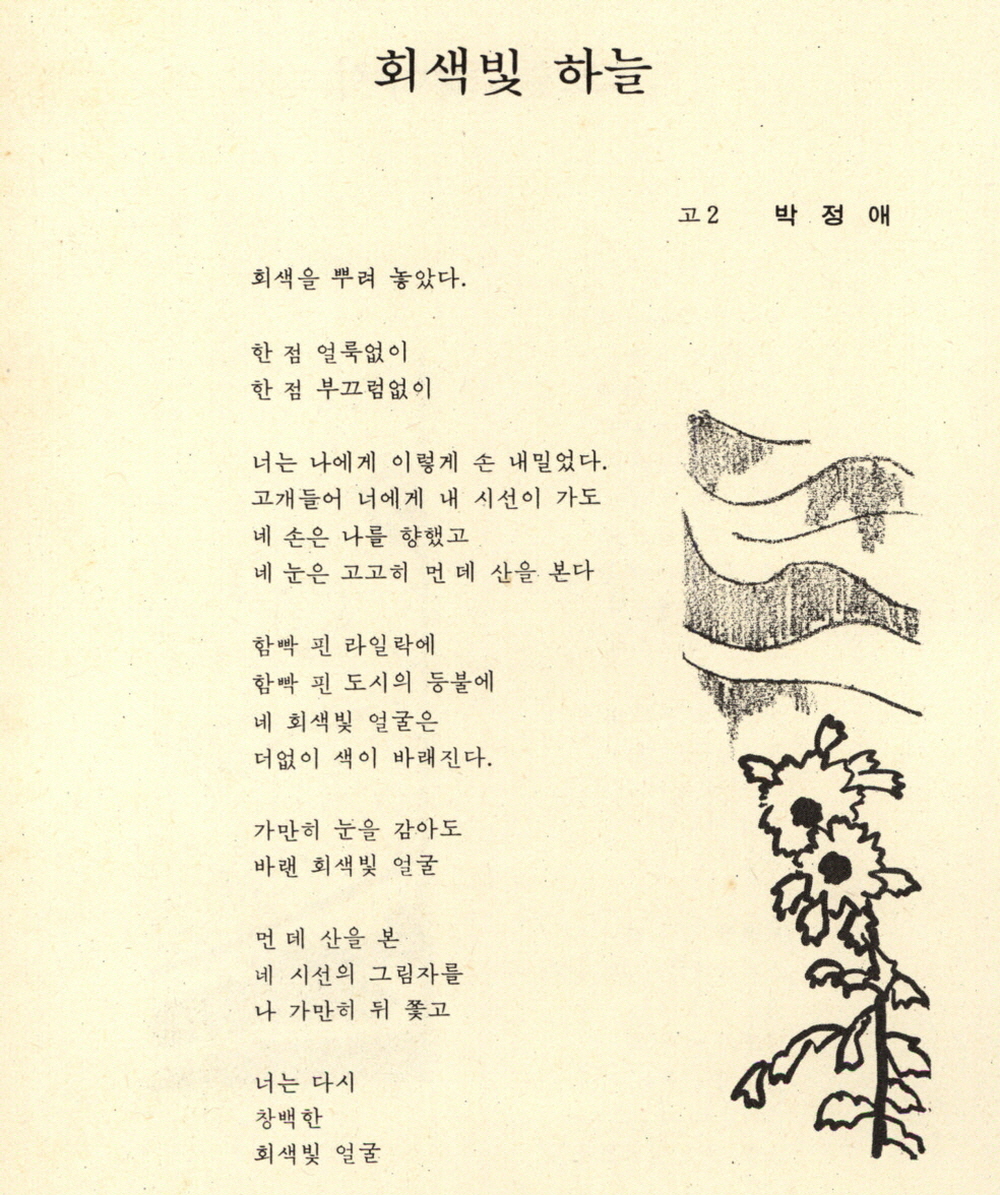 회색빛 하늘
고2 박 정 애
회색을 뿌려 놓았다.
한 점 얼룩없이
한 점 부끄럼없이
너는 나에게 이렇게 손 내밀었다.
고개들어 너에게 내 시선이 가도
네 손은 나를 향했고
네 눈은 고고히 먼 데 산을 본다
함빡 핀 라일락에
함빡 핀 도시의 등불에
네 회색빛 얼굴은
더없이 색이 바래진다.
가만히 눈을 감아도
바랜 회색빛 얼굴
먼 데 산을 본
네 시선의 그림자를
나 가만히 뒤 쫓고
너는 다시
창백한
회색빛 얼굴